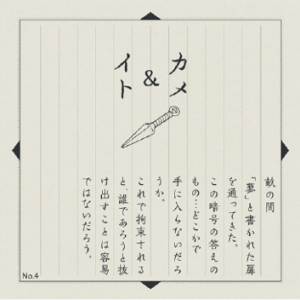 カメ
&
イト
畝の間
「夢」と書かれた扉
を通ってきた。
この暗号の答えの
もの…どこかで
手に入らないだろ
うか。
これで拘束される
と、誰であろうと抜
け出すことは容易
ではないだろう。
No.4